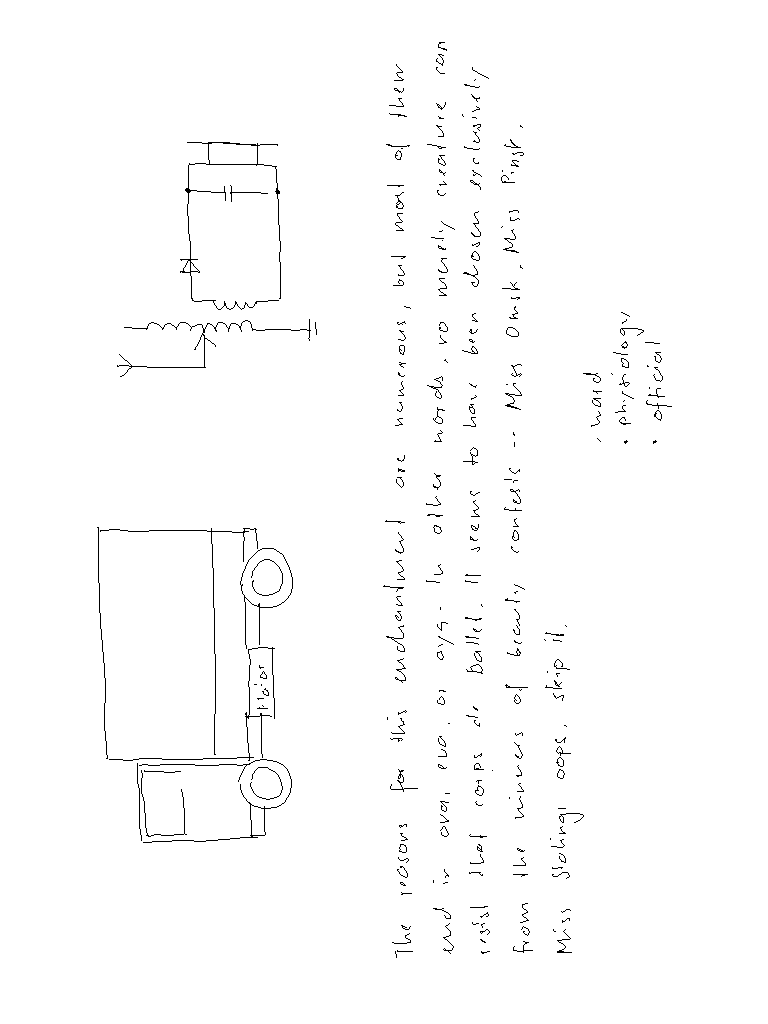 The reasons for this enchantment are numerous, but most of them
end in ova, eva, or aya. In other words, no merely creature can
resist that corps de ballet. It seems to have been chosen exclusively
from the winners of beauty contests -- Miss Omsk, Miss Pinsk,
Miss Stalingr oops, skip it.
hard
• physiology
• official